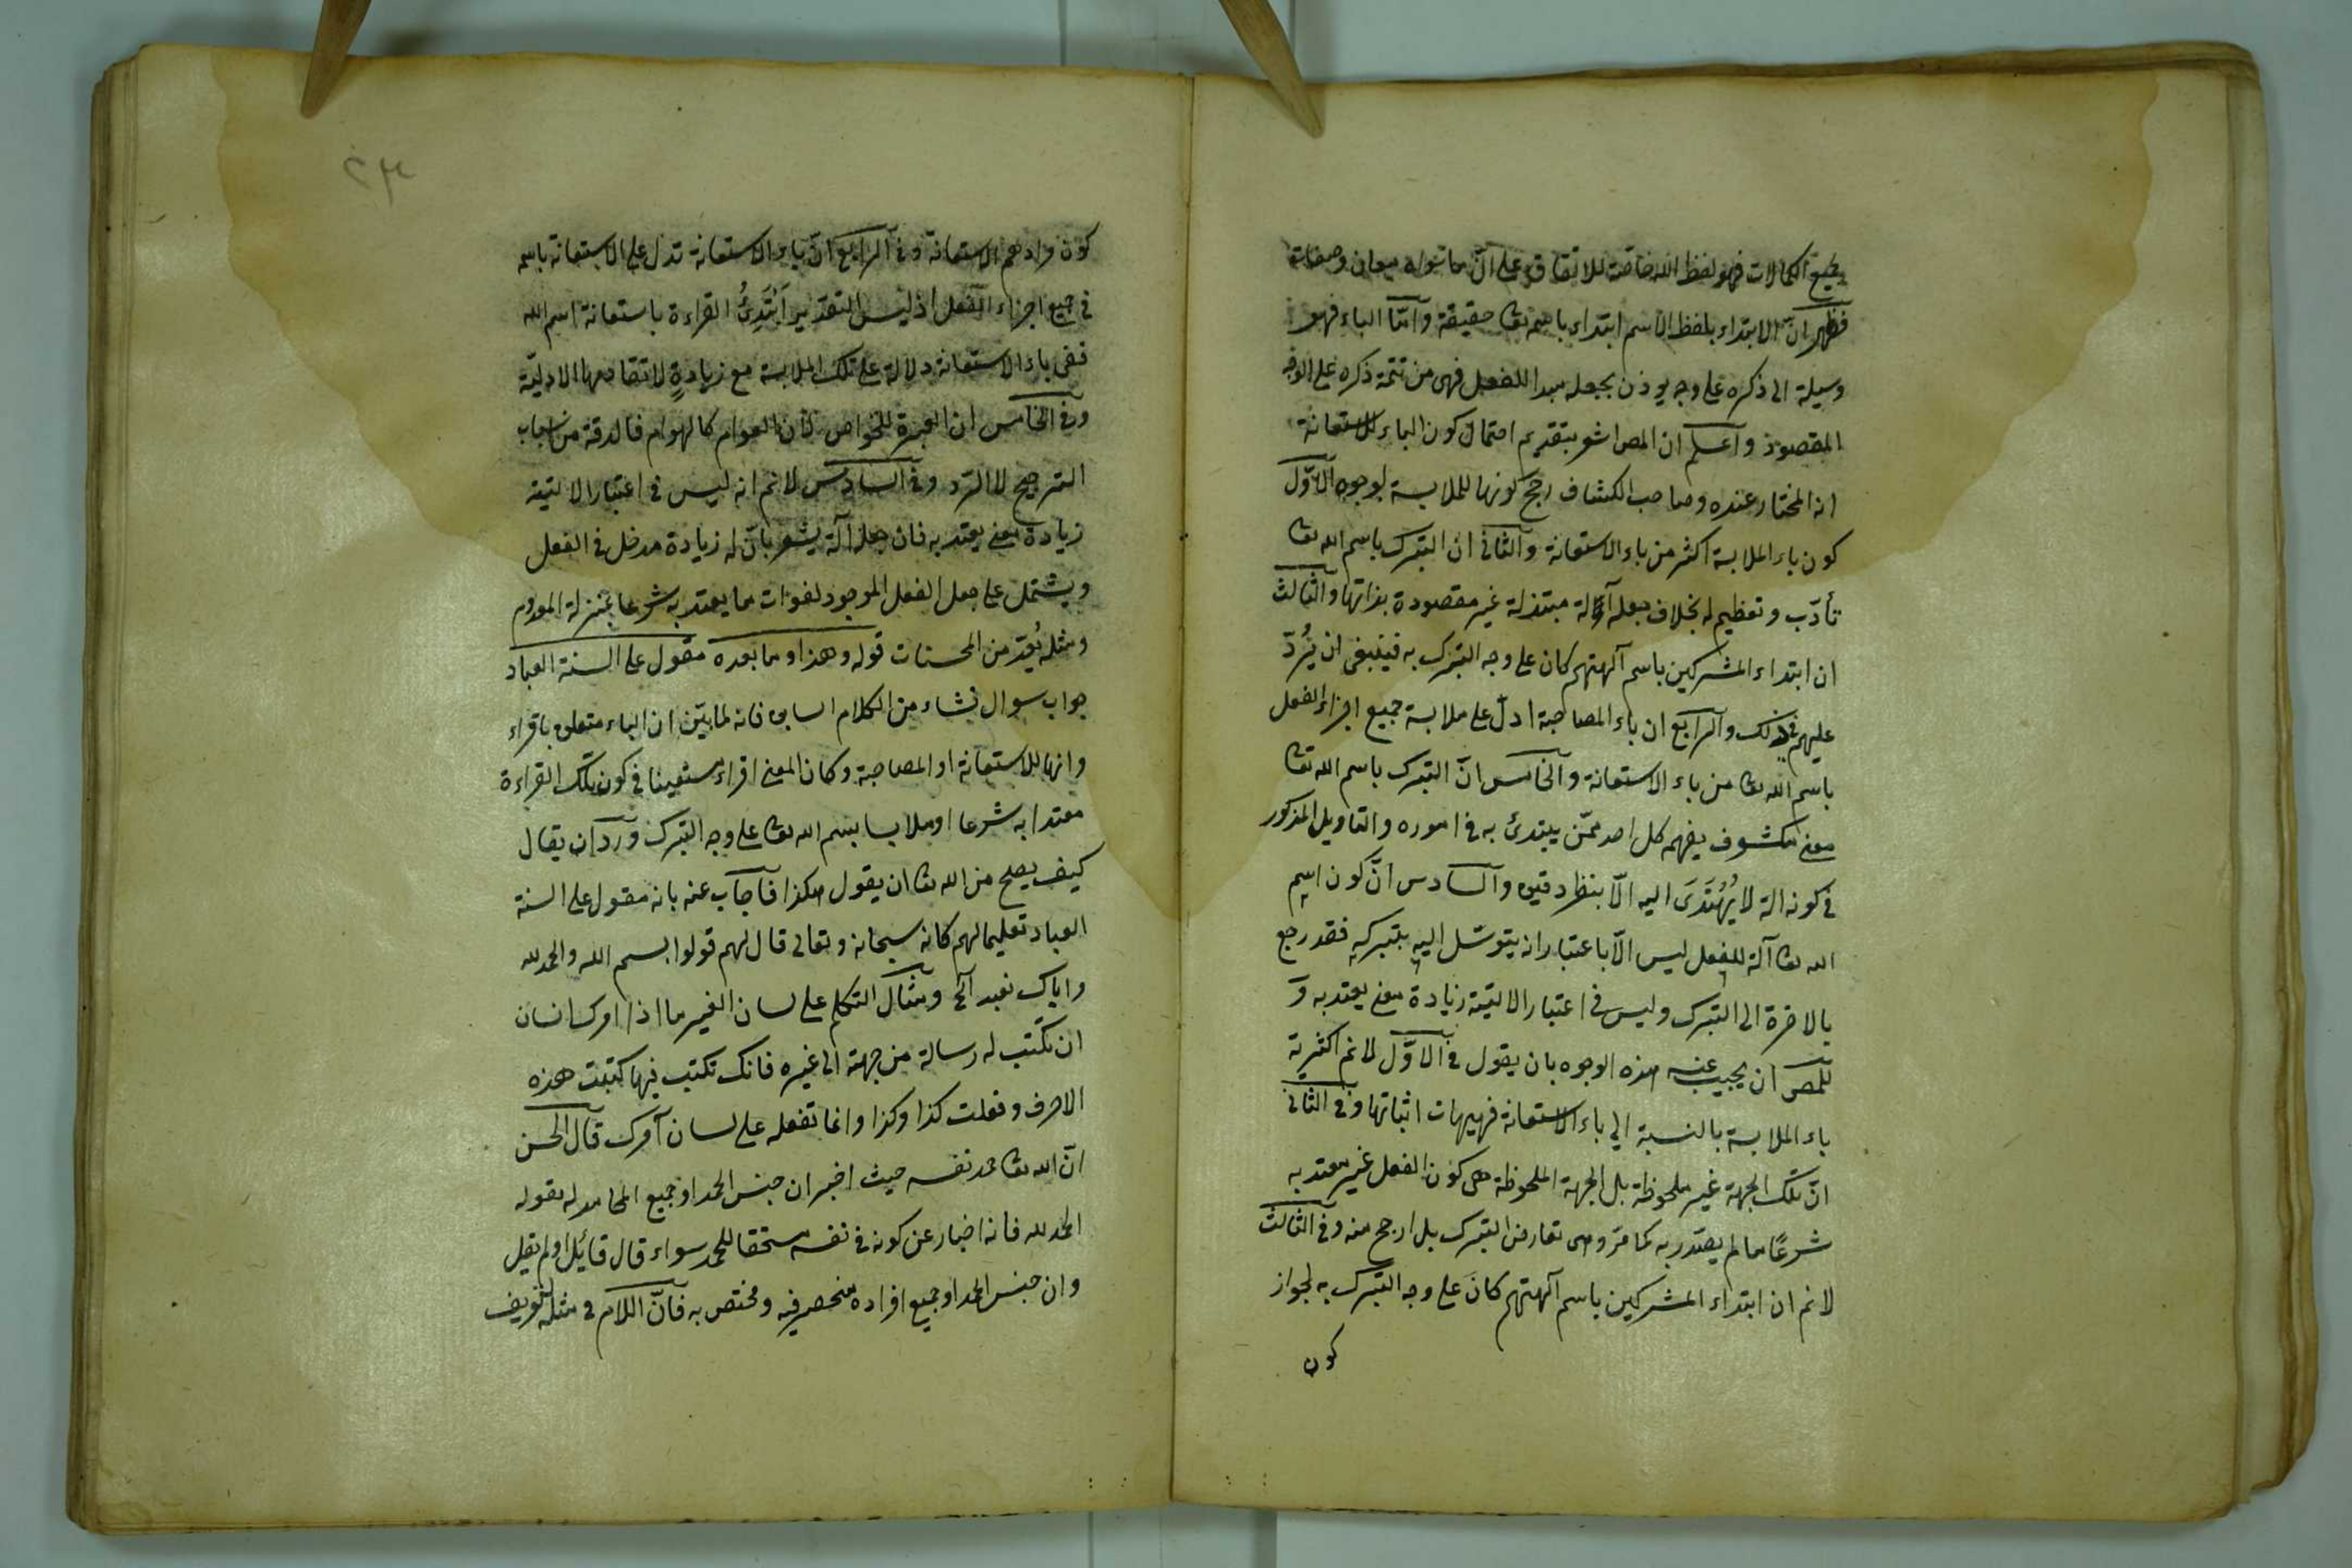 لجميع الكمالات فهو لفظ الله خاصة للاتفاق على ان ما سواه معان وصفات
فظهر انّ الابتداء بلفظ الاسم ابتداء باسمه تعا حقيقة وامّا الباء فهو
وسيلة الى ذكره على وجه يوذن بجعله مبدا للفعل فهى من تتمة ذكره على الوجه
المقصود واعلم ان المص اشعر بتقديم احتمال كون الباء للاستعانة
انه المختار عنده وصاحب الكشاف رجح كونها للملابسة لوجوه الاوّل
كون باء الملابسة اكثر من باء الاستعانة والثانى ان التبرك باسم الله تعا
تأدّب وتعظيم له بخلاف جعله آلة مبتذلة غير مقصودة بذاتها والثالث
ان ابتداء المشركين باسم آلهتهم كان على وجه التبرك به فينبغى ان يُردّ
عليهم فى ذلك والرابع ان باء المصاحبة ادلّ على ملابسة جميع اجزاء الفعل
باسم الله تعا من باء الاستعانة والخامس انّ التبرك باسم الله تعا
معنى مكشوف يفهمه كل احد ممّن يبتدئ به فى اموره والتاويل المذكور
فى كونه الة لا يُهْتَدَى اليه الّا بنظر دقيق والسادس انّ كون اسم
الله تعا آلة للفعل ليس الّا باعتبار انه يتوسّل اليه بتبركه فقد رجع
بالاخرة الى التبرك وليس فى اعتبار الالتية زيادة معنى يعتد به و
للمص ان يجيب عنه هذه الوجوه بان يقول فى الاوّل لا نم اكثرية
باء الملابسة بالنسبة الى باء الاستعانة فهيهات اثباتها وفى الثانى
انّ تلك الجهة غير ملحوظة بل الجهة الملحوظة هى كون الفعل غير معتد به
شرعًا ما لم يصدر به كما مرّ وهى تعارض التبرك بل ارجح منه وفى الثالث
لا نم ان ابتداء المشركين باسم آلهتهم كانَ على وجه التبرك به لجواز
كون
٢٣
كون مرادهم الاستعانة وفى الرابع انّ باء الاستعانة تدل على الاستعانة باسمه
فى جميع اجزاء الفعل اذ ليس التقدير اَبْتَدِئُ القراءة باستعانة اسم الله
ففى باء الاستعانة دلالة على تلك الملابسة مع زيادةٍ لا تتقاصها الادليّة
وفى الخامس ان العبرة للخواص لان العوام كالهوام فالدقة من اسباب
الترجيح لا الترد وفى السادس لا نم انه ليس فى اعتبار الالتية
زيادة معنى يعتد به فان جعله آلة يشعر بانّ له زيادة مدخل فى الفعل
ويشتمل على جعل الفعل الموجود لفوات ما يعتد به شرعا بمنزلة المعدوم
ومثله يُعدّ من المحسنات قوله وهذا وما بعده مقول على السنة العباد
جواب سوال نشاء من الكلام السابق فانه لما بيّن ان الباء متعلق باقراء
وانها للاستعانة او المصاحبة وكان المعنى اقراء مستعينا فى كون تلك القراءة
معتدا به شرعا او ملابسا بسم الله تعا على وجه التبرك ورد ان يقال
كيف يصلح من الله تعا ان يقول هكذا فاجاب عنه بانه مقول على السنة
العباد تعليما لهم كانه سبحانه وتعالى قال لهم قولوا بسم الله والحمد لله
واياك نعبد الخ ومثال التكلم على لسان الغير ما اذا امرك انسان
ان تكتب له رسالة من جهته الى غيره فانك تكتب فيها كتبت هذه
الاحرف وفعلت كذا وكذا وانما تفعله على لسان آمرك قال الحسن
انّ الله تعا حمد نفسه حيث اخبر ان جنس الحمد او جميع المحامد له بقوله
الحمد لله فانه اخبار عن كونه فى نفسه مستحقا للحمد سواء قال قائل او لم يقل
وان جنس الحمد او جميع افراده منحصر فيه ومختص به فانّ اللام فى مثله لتعريف